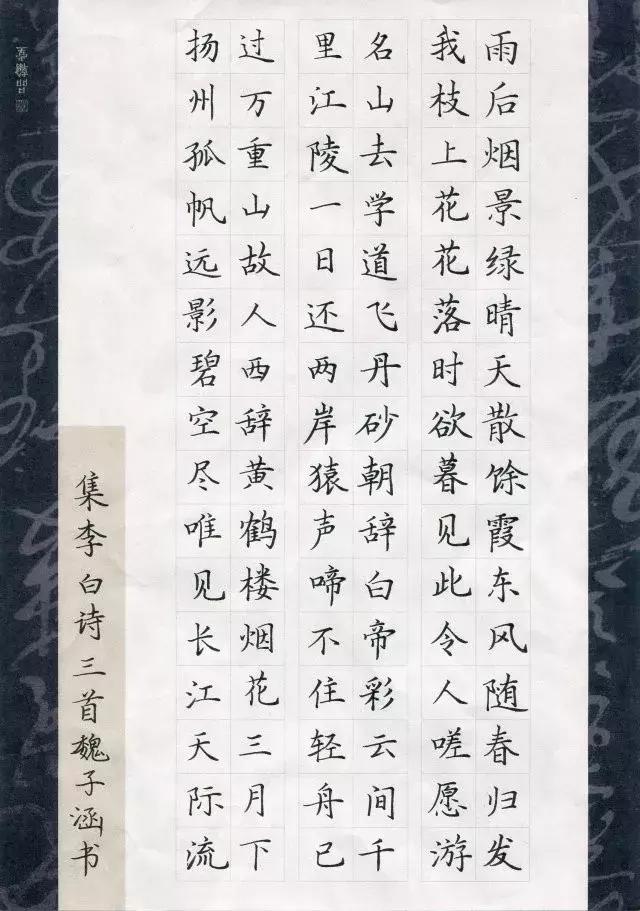 雨后烟景绿晴天散馀霞东风随春归发
我枝上花花落时欲暮见此令人嗟愿游
名山去学道飞丹砂朝辞白帝彩云间千
里江陵一日还两岸猿声啼不住轻舟已
过万重山故人西辞黄鹤楼烟花三月下
扬州孤帆远影碧空尽唯见长江天际流
集李白诗三首魏子涵书